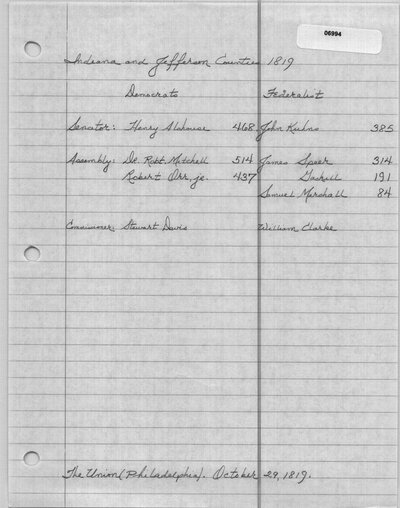 06994
Indiana and Jefferson Counties 1819
Democrats Federalist
Senator: Henry Alshouse 468 John Kuhns 385
Assembly: Dr. Robt. Mitchell 514 James Speer 314
Robert Orr, jr. 437 Gaskell 191
Samuel Marshall 84
Commissioner: Stewart Davis William Clarke
The Union (Philadelphia). October 29, 1819.